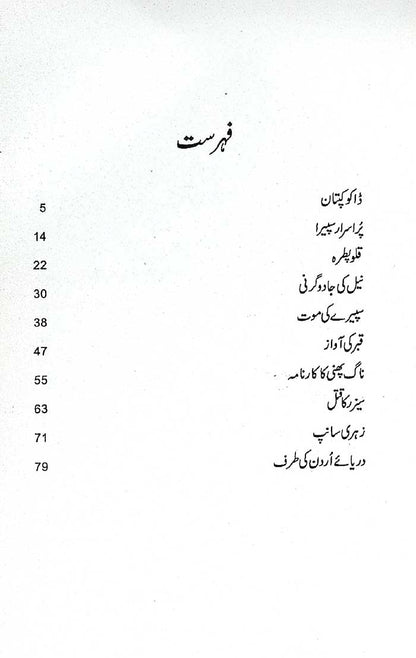 فہرست
ڈاکو کپتان 5
پُراسرار سپیرا 14
قلوپطرہ 22
نیل کی جادوگرنی 30
سپیرے کی موت 38
قبر کی آواز 47
ناگ پھنی کا کارنامہ 55
سیزر کا قتل 63
زہری سانپ 71
دریائے اُردن کی طرف 79